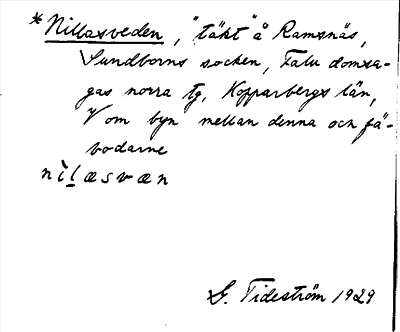 *Nillasveden, "täkt" å Ramsnäs,
Sundborns socken, Falu domsa-
gas norra tg, Kopparbergs län,
V om byn mellan denna och fä-
bodarne
nìlæsvæn
G. Tideström 1929